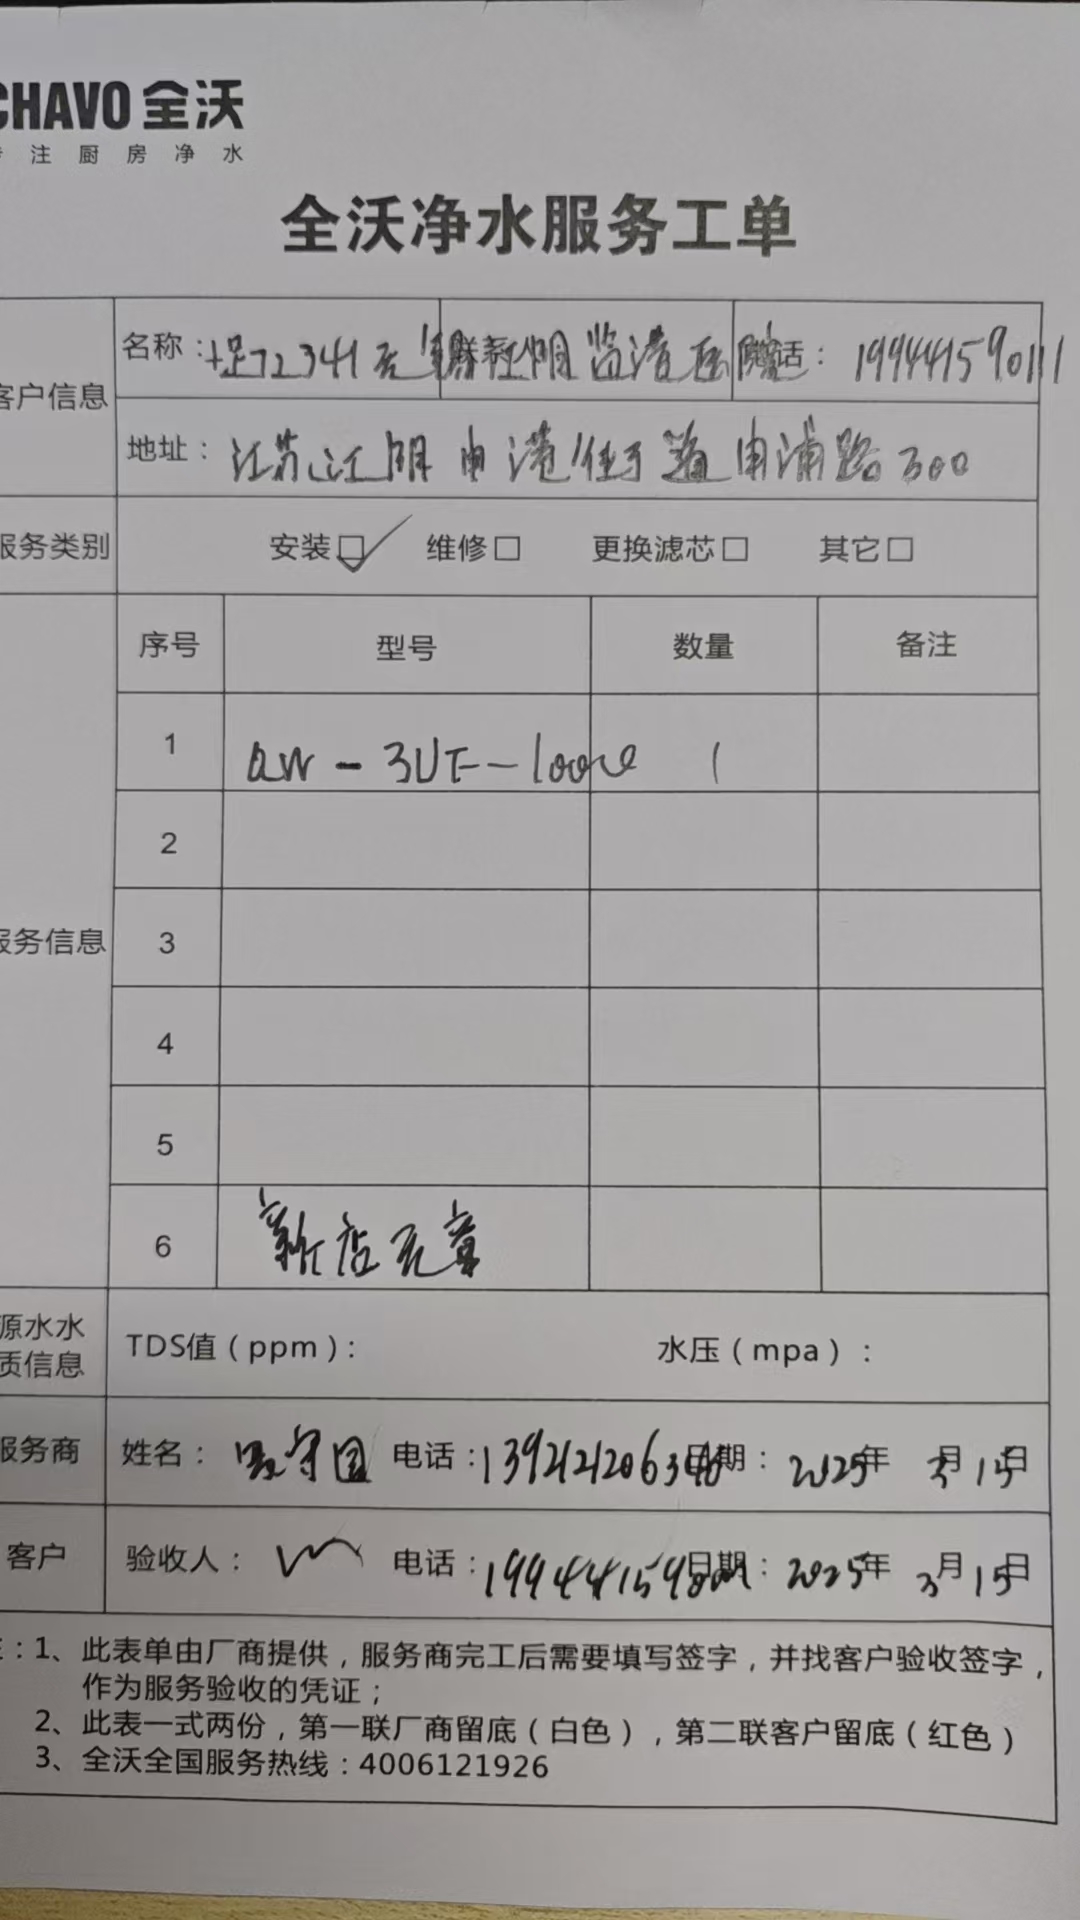 CHAVO 全沃
注厨房净水
全沃净水服务工单
客户信息
名称：72341 电话：19944159011
地址：江苏江阴申港街道申浦路300
服务类别 安装☑ 维修□ 更换滤芯□ 其它□
服务信息
序号 型号 数量 备注
1 QW-3UF-1000 1
2
3
4
5
6 新店无章
源水水质信息 TDS值（ppm）： 水压（mpa）：
服务商 姓名：守国 电话： 日期：2025年3月15日
客户 验收人： 电话： 日期：2025年3月15日
：1、此表单由厂商提供，服务商完工后需要填写签字，并找客户验收签字，
作为服务验收的凭证；
2、此表一式两份，第一联厂商留底（白色），第二联客户留底（红色）
3、全沃全国服务热线：4006121926